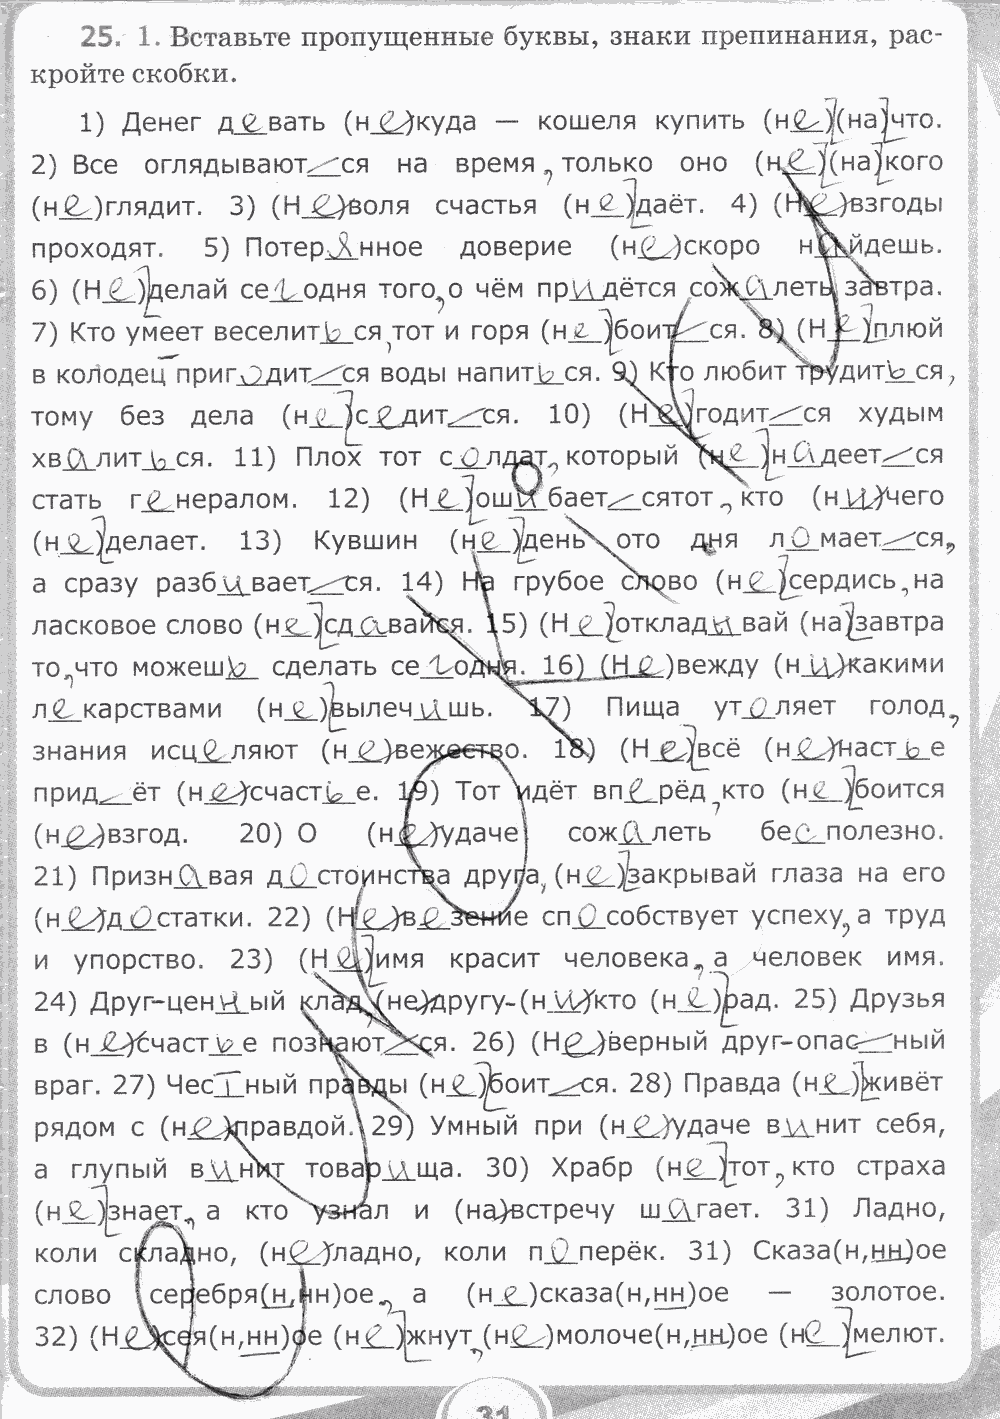 25. 1. Вставьте пропущенные буквы, знаки препинания, рас-
кройте скобки.
1) Денег девать (не)куда — кошеля купить (не)(на)что.
2) Все оглядываются на время, только оно (не)(на)кого
(не)глядит. 3) (Не)воля счастья (не)даёт. 4) (Не)взгоды
проходят. 5) Потерянное доверие (не)скоро найдешь.
6) (Не)делай сегодня того, о чём придётся сожалеть завтра.
7) Кто умеет веселиться, тот и горя (не)боится. 8) (Не)плюй
в колодец пригодится воды напиться. 9) Кто любит трудиться,
тому без дела (не)седится. 10) (Не)годится худым
хвалиться. 11) Плох тот солдат, который (не)надеется
стать генералом. 12) (Не)ошибается тот, кто (ни)чего
(не)делает. 13) Кувшин (не)день ото дня ломается,
а сразу разбивается. 14) На грубое слово (не)сердись, на
ласковое слово (не)сдавайся. 15) (Не)откладывай (на)завтра
то, что можешь сделать сегодня. 16) (Не)вежду (ни)какими
лекарствами (не)вылечишь. 17) Пища утоляет голод,
знания исцеляют (не)вежество. 18) (Не)всё (не)настье
придёт (не)счастье. 19) Тот идёт вперёд, кто (не)боится
(не)взгод. 20) О (не)удаче сожалеть бесполезно.
21) Признавая достоинства друга, (не)закрывай глаза на его
(не)достатки. 22) (Не)везение способствует успеху, а труд
и упорство. 23) (Не)имя красит человека, а человек имя.
24) Друг-ценный клад, (не)другу-(ни)кто (не)рад. 25) Друзья
в (не)счастье познаются. 26) (Не)верный друг-опасный
враг. 27) Честный правды (не)боится. 28) Правда (не)живёт
рядом с (не)правдой. 29) Умный при (не)удаче винит себя,
а глупый винит товарища. 30) Храбр (не)тот, кто страха
(не)знает, а кто узнал и (на)встречу шагает. 31) Ладно,
коли складно, (не)ладно, коли поперёк. 31) Сказа(н,нн)ое
слово серебря(н,нн)ое, а (не)сказа(н,нн)ое — золотое.
32) (Не)сея(н,нн)ое (не)жнут, (не)молоче(н,нн)ое (не)мелют.
31